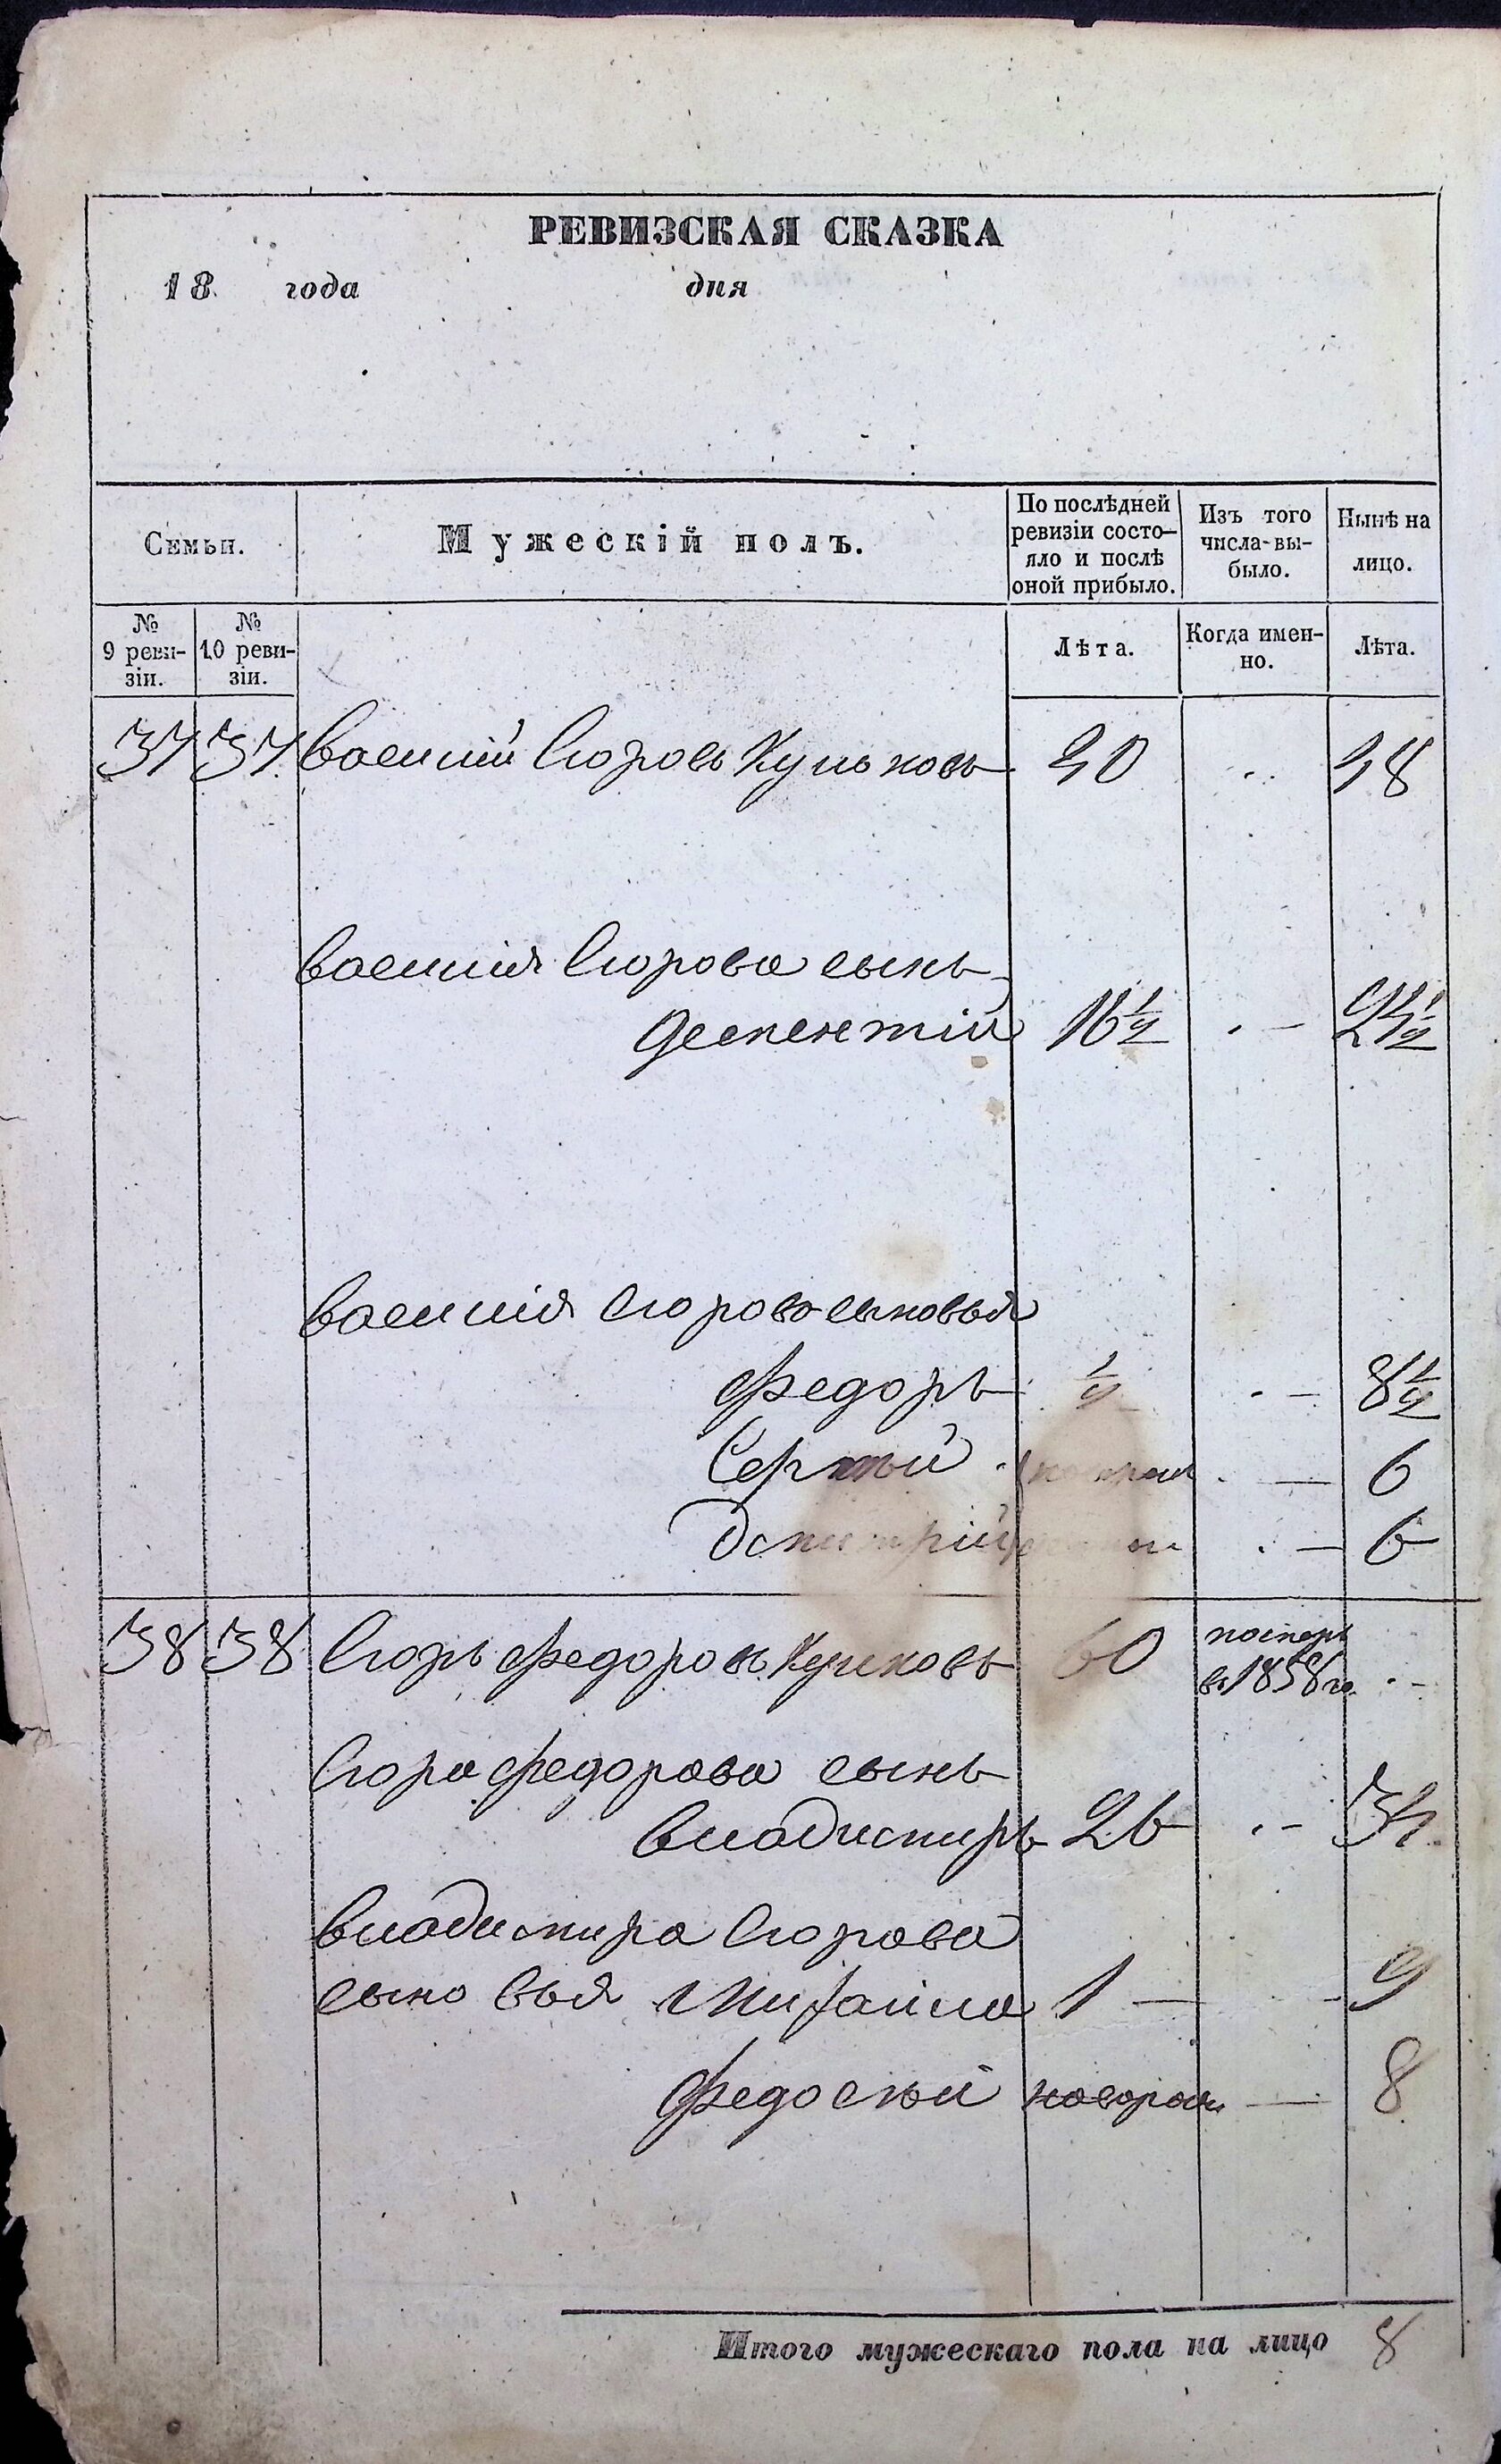 РЕВИЗСКАЯ СКАЗКА
18 года дня
Семьи.
Мужескій полъ.
По послѣдней ревизіи состо-
яло и послѣ оной прибыло.
Изъ того числа вы-
было.
Нынѣ на лицо.
№ 9 реви-
зіи.
№ 10 реви-
зіи.
Лѣта.
Когда имен-
но.
Лѣта.
37 37 Василій Егоровъ 40 48
Василія Егорова сынъ
16½ 24½
Василія Егорова сыновья
Федоръ ½ 8½
Сергѣй 6
Дмитрій 6
38 38 Егоръ Федоровъ 60 померъ
въ 1858 го.
Егора Федорова сынъ
Владимиръ 26 34
Владимира Егорова
сыновья Михаила 1 9
Федосѣй новорож 8
Итого мужескаго пола на лицо 8